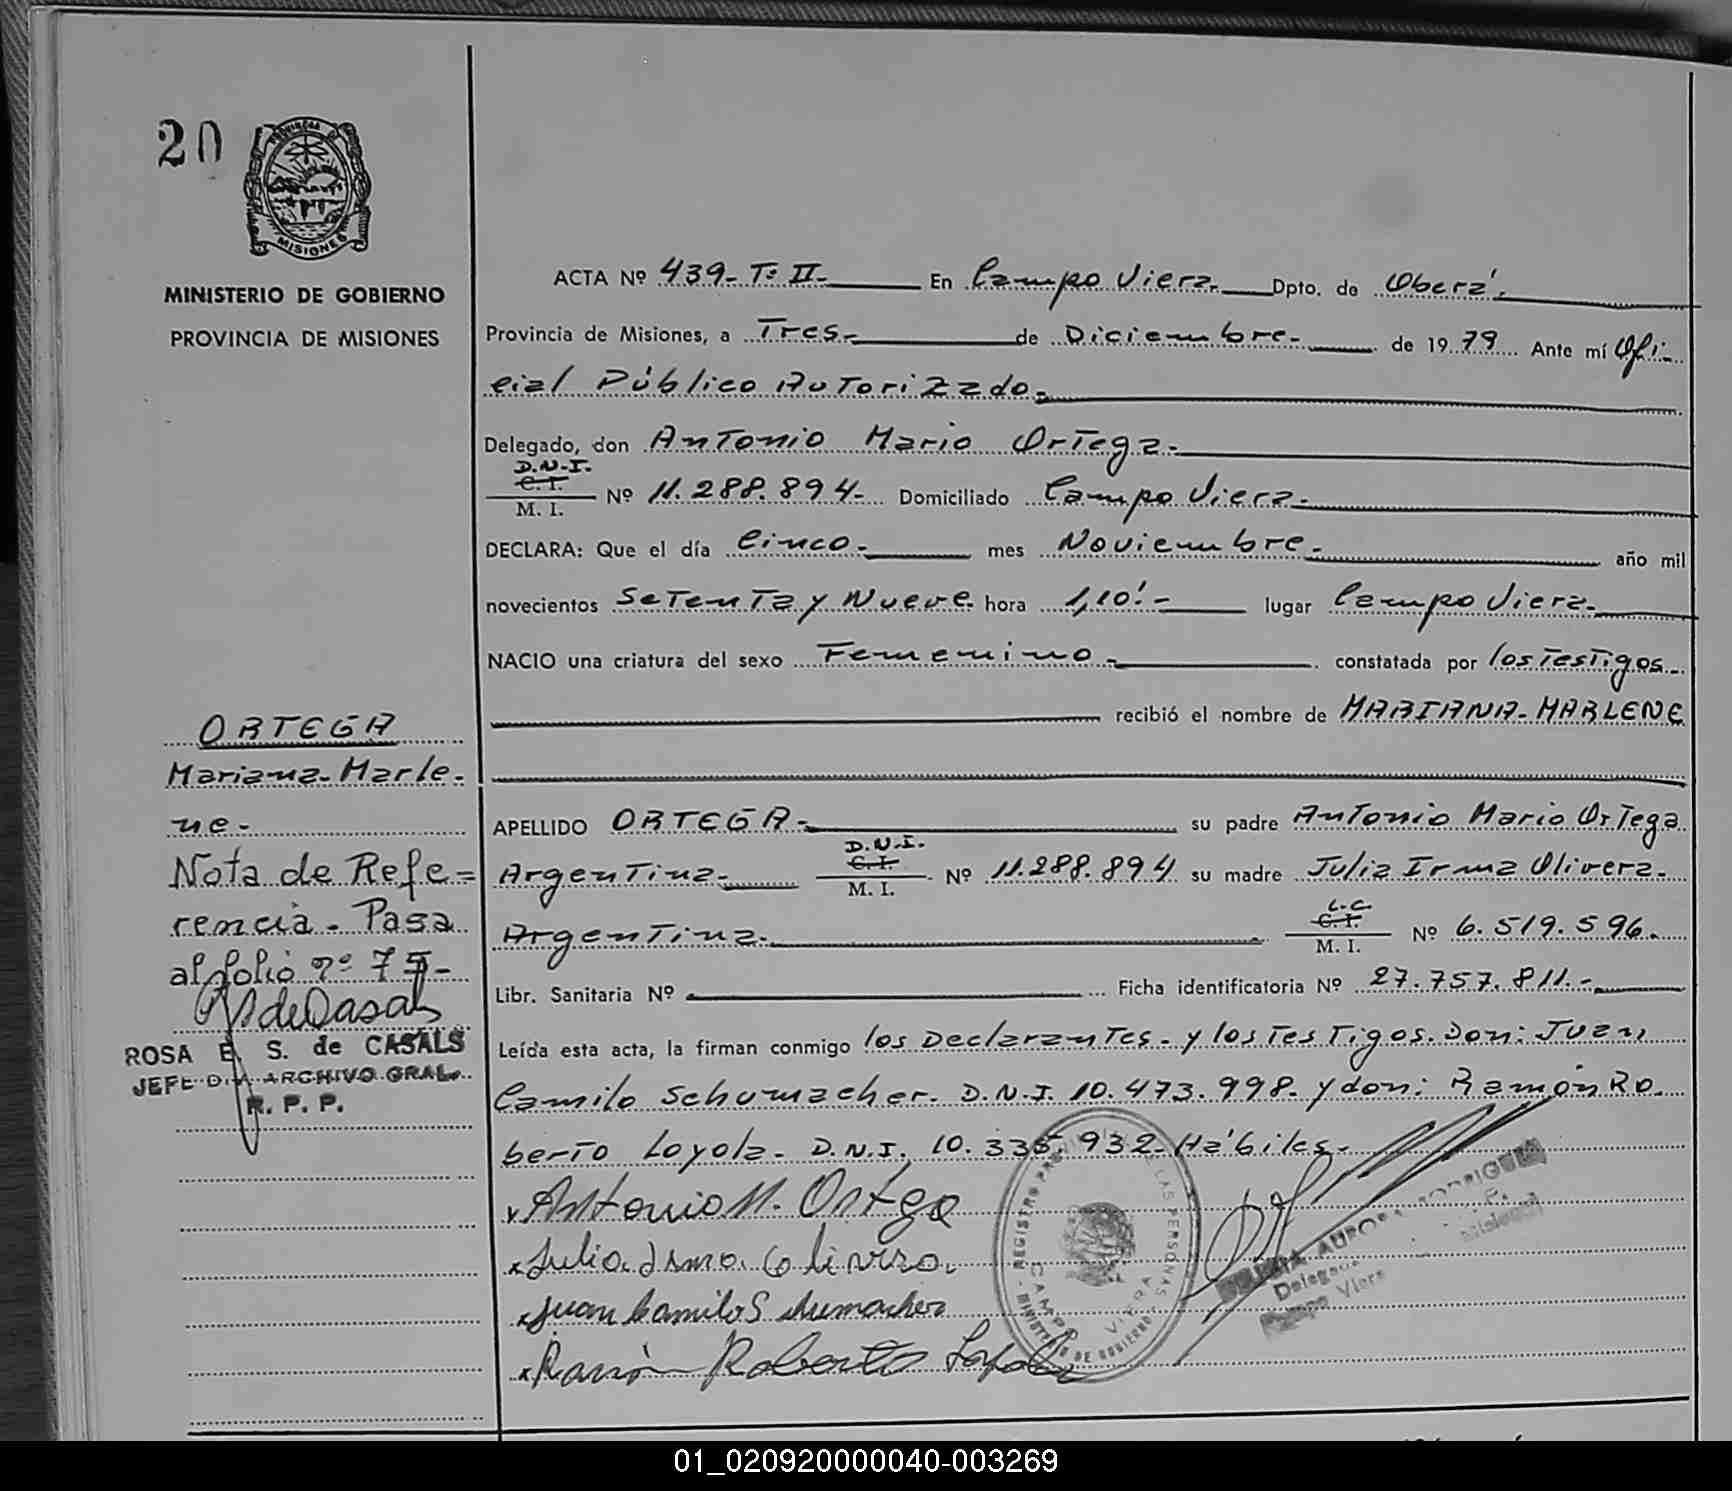 20
MISIONES
MINISTERIO DE GOBIERNO
PROVINCIA DE MISIONES
ACTA Nº 439-Tº II- En Campo Viera. Dpto. de Oberá.
Provincia de Misiones, a Tres- de Diciembre- de 1979 Ante mí Ofi-
cial Público Autorizado.
Delegado, don Antonio Mario Ortega-
D.N.I.
C.I.
M. I. Nº 11.288.894- Domiciliado Campo Viera-
DECLARA: Que el día Cinco- mes Noviembre- año mil
novecientos Setenta y Nueve. hora 1,10'- lugar Campo Viera-
NACIO una criatura del sexo Femenino- constatada por los Testigos-
recibió el nombre de MARIANA-MARLENE
APELLIDO ORTEGA- su padre Antonio Mario Ortega
Argentina- D.N.I.
C.I.
M. I. Nº 11.288.894 su madre Julia Irma Olivera-
Argentina- L.C.
C.I.
M. I. Nº 6.519.596-
Libr. Sanitaria Nº Ficha identificatoria Nº 27.757.811.-
Leída esta acta, la firman conmigo los Declarantes- y los Testigos. Don: Juan
Camilo Schumacher. D.N.I. 10.473.998- y don: Ramón Ro
berto Loyola- D.N.I. 10.335.932-Hábiles-
Antonio M. Ortega
Julia Irma Olivera.
Juan Camilo Schumacher
Ramón Roberto Loyola
ORTEGA
Mariana-Marle-
ne-
Nota de Refe=
rencia- Pasa
al folio nº 75-
ROSA E. S. de CASALS
JEFE DIV. ARCHIVO GRAL.
R. P. P.
REGISTRO PROVINCIAL DE LAS PERSONAS
MINISTERIO DE GOBIERNO
CAMPO VIERA
AURORA RODRIGUEZ
Delegada
Campo Viera
01_020920000040-003269